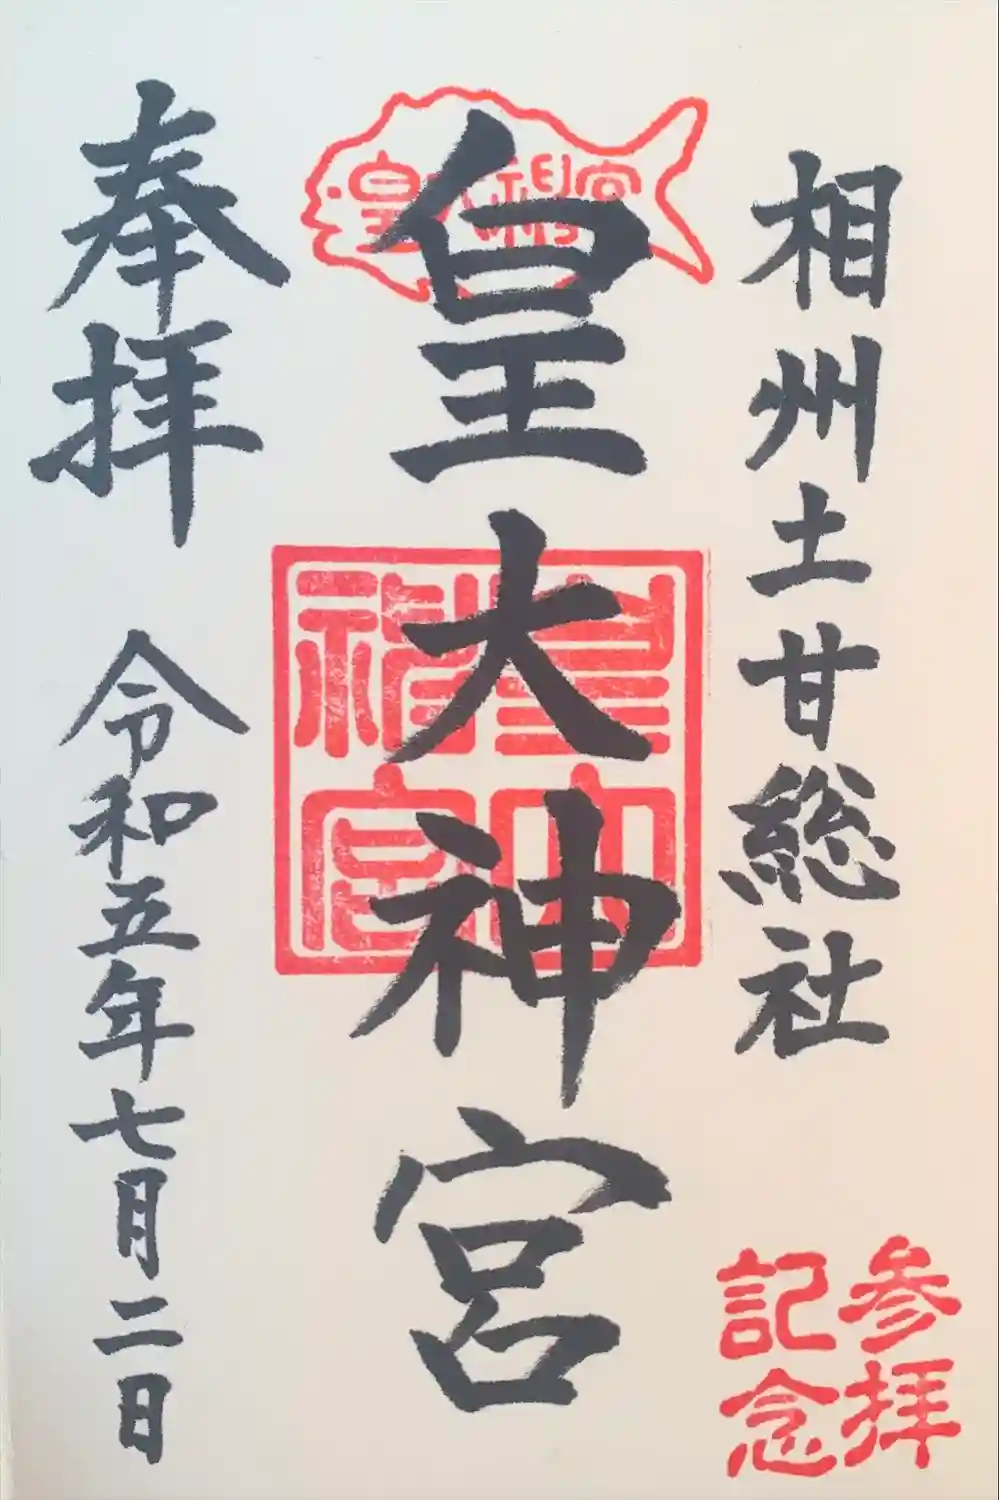 相州土甘総社
参拝
記念
皇大神宮
皇大神宮
皇大神宮
奉拝
令和五年七月二日